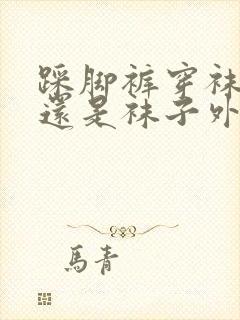 踩脚裤穿袜
還是袜子外
馬青